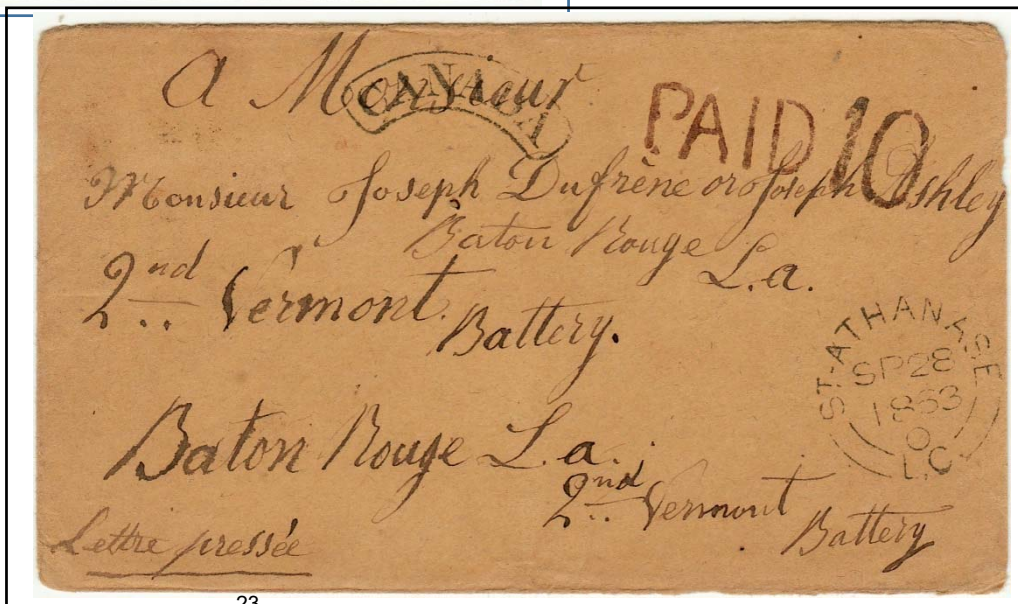 A Monsieur
CANADA
PAID 10
Monsieur Joseph Dufrène or Joseph Ashley
Baton Rouge
L.a.
2nd Vermont
Battery.
ST-ATHANASE
SP 28
1863
L.C.
Baton Rouge L.a.
2nd Vermont
Battery
Lettre pressée
23